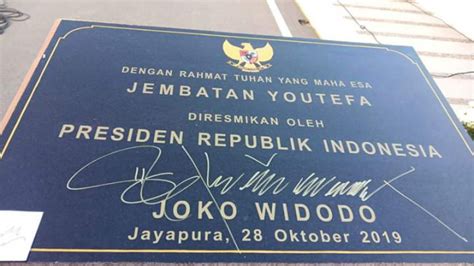 DENGAN RAHMAT TUHAN YANG MAHA ESA
JEMBATAN YOUTEFA
DIRESMIKAN OLEH
PRESIDEN REPUBLIK INDONESIA
JOKO WIDODO
Jayapura, 28 Oktober 2019